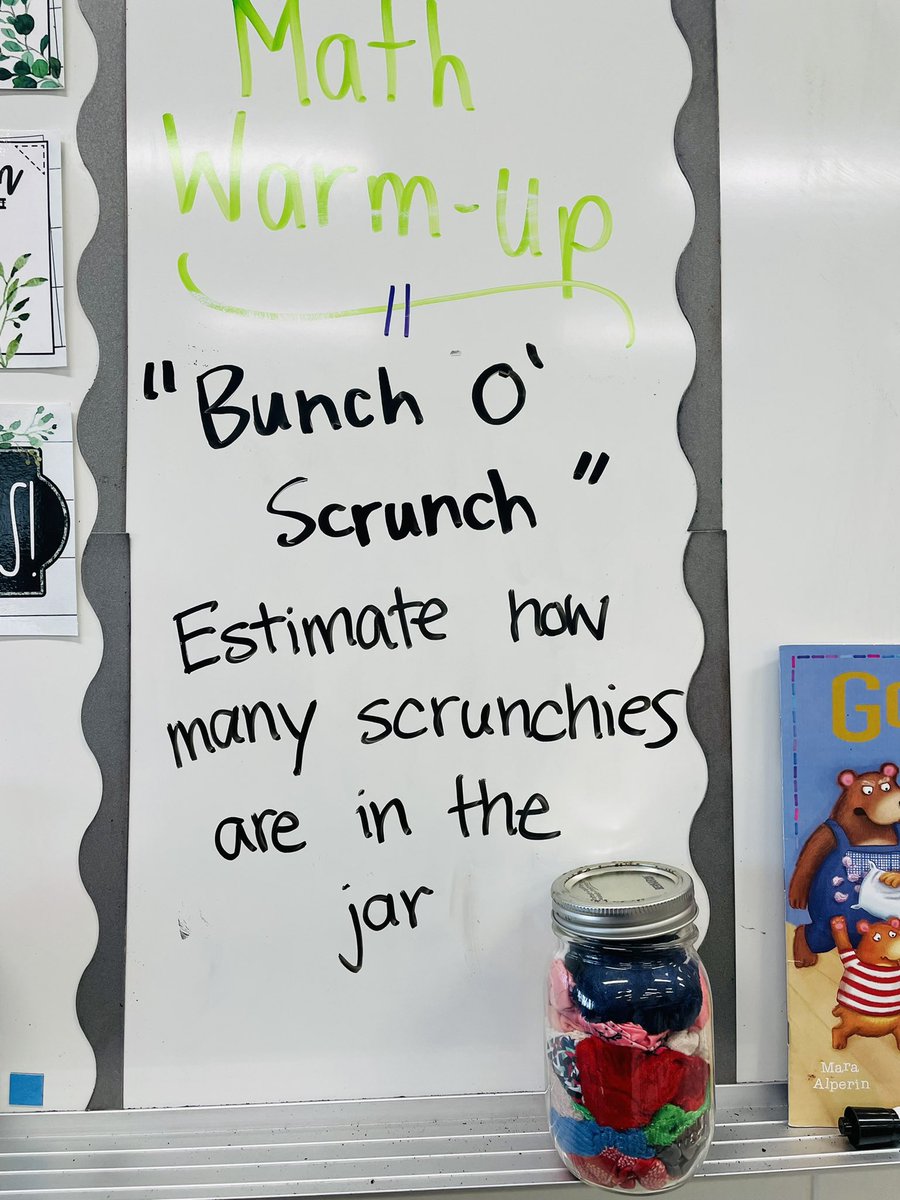 Math
Warm-Up
"Bunch O'
Scrunch"
Estimate how
many scrunchies
are in the
jar
Mara
Alperin